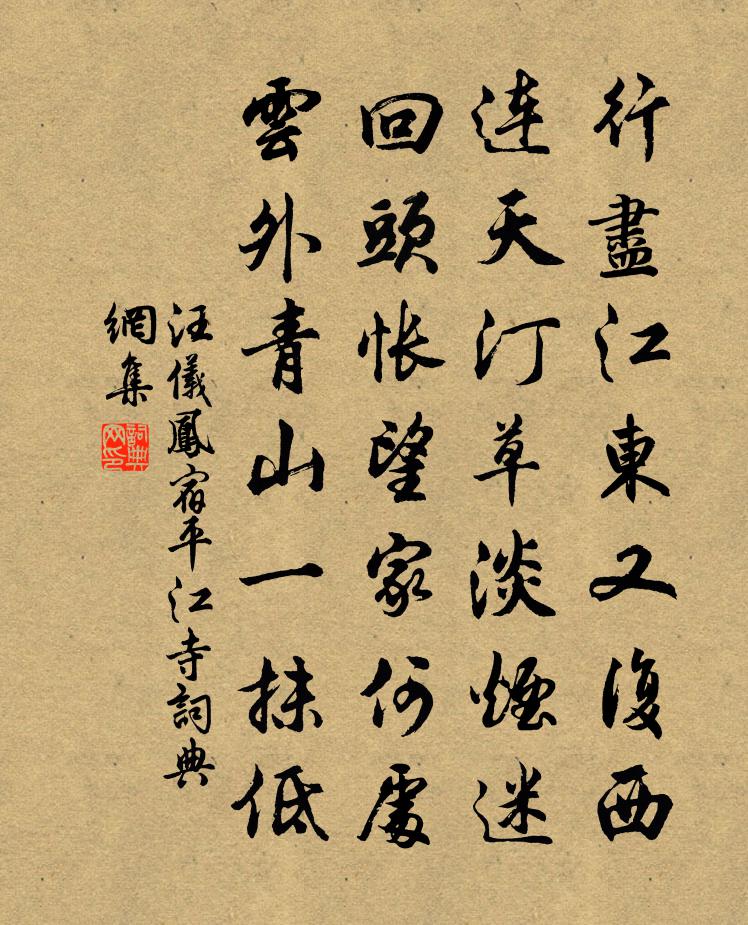 行盡江東又復西
連天汀草淡煙迷
回頭悵望家何處
雲外青山一抹低
汪儀鳳宿平江寺詞典
網集
詞典
网印